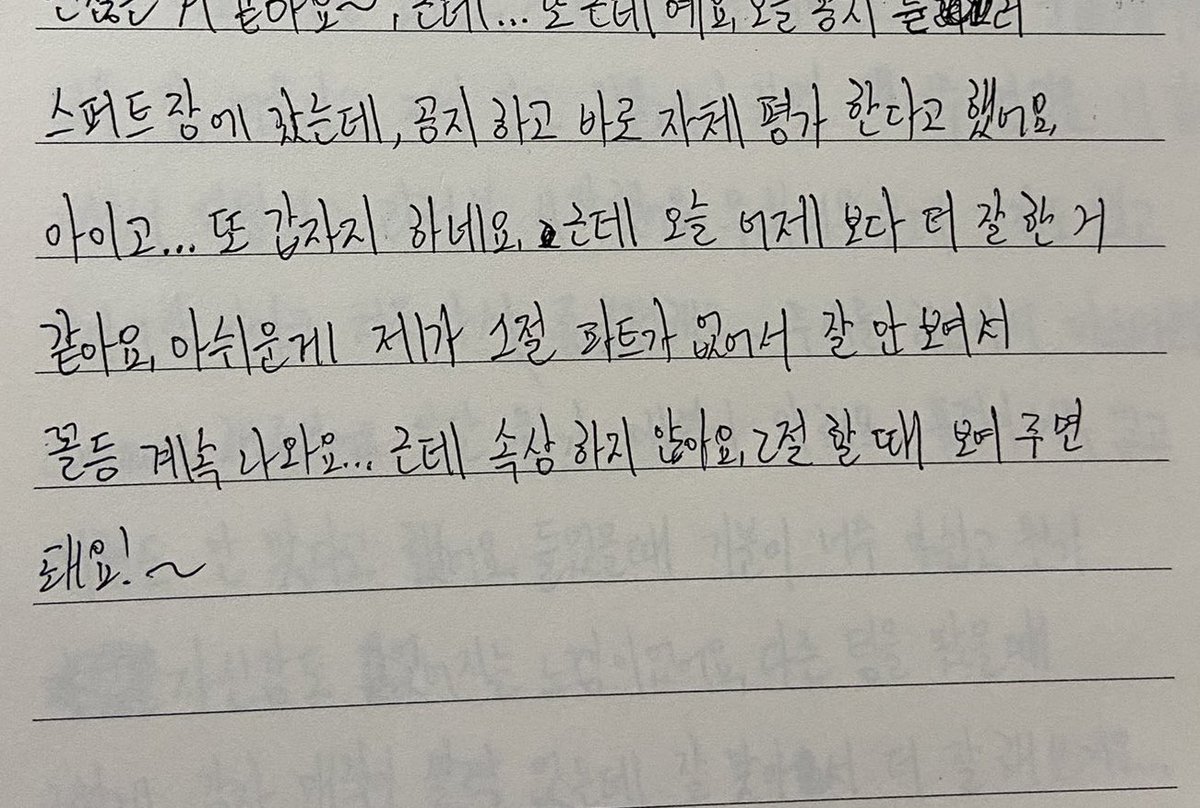 같아요~, 근데... 또 근데 예요, 오늘 공지
스퍼트 장에 갔는데, 공지 하고 바로 자체 평가 한다고 했어요,
아이고... 또 갑자지 하네요, 근데 오늘 어제 보다 더 잘 한 거
같아요, 아쉬운게 제가 1절 파트가 없어서 잘 안 보여서
꼴등 계속 나와요... 근데 속상 하지 않아요, 2절 할 때 보여 주면
돼요!~